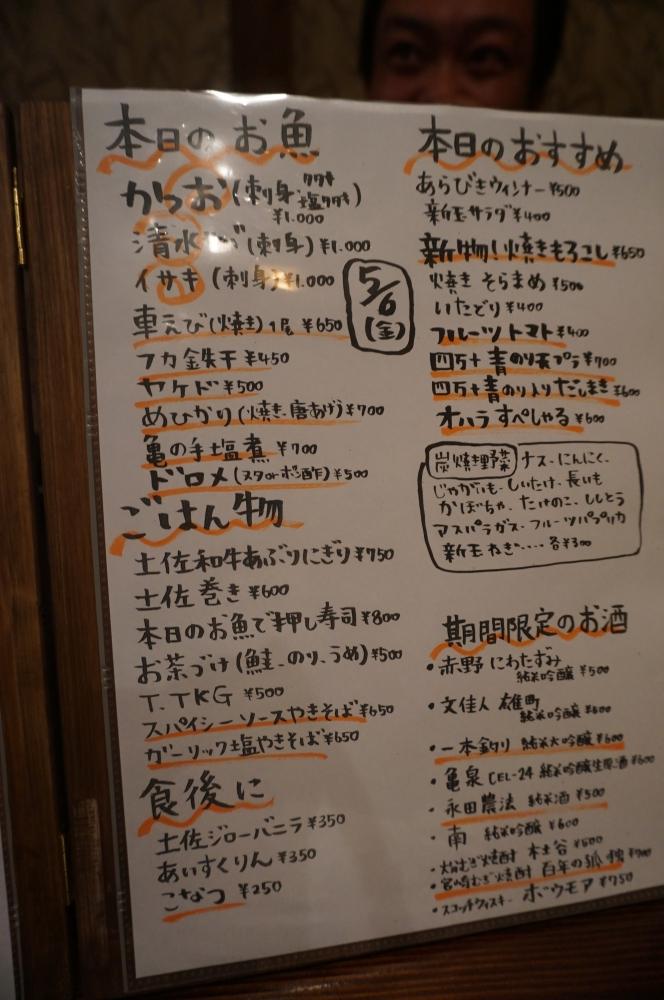 本日のお魚
かつお(刺身・タタキ 塩タタキ)
¥1.000
清水サバ(刺身)¥1.000
イサキ(刺身)¥1.000
車えび(焼き)1尾 ¥650
フカ鉄干 ¥450
ヤケド ¥500
めひかり(焼き、唐あげ)¥700
亀の手塩煮 ¥700
ドロメ(ヌタorポン酢)¥500
5/6
(金)
ごはん物
土佐和牛あぶりにぎり¥750
土佐巻き ¥600
本日のお魚で押し寿司¥800
お茶づけ(鮭、のり、うめ)¥500
T.TKG ¥500
スパイシーソースやきそば ¥650
ガーリック塩やきそば¥650
食後に
土佐ジローバニラ¥350
あいすくりん¥350
こなつ ¥250
本日のおすすめ
あらびきウィンナー¥500
新玉サラダ¥400
新物!焼きもろこし¥650
焼き そらまめ¥500
いたどり¥400
フルーツトマト¥400
四万十青のり天プラ¥700
四万十青のり入りだしまき¥600
オハラすぺしゃる¥600
炭焼き野菜 ナス・にんにく・
じゃがいも・しいたけ・長いも
かぼちゃ・たけのこ・ししとう
アスパラガス・フルーツパプリカ
新玉ねぎ‥‥ 各¥300
期間限定のお酒
・赤野 にわたずみ
純米吟醸 ¥500
・文佳人 雄町
純米吟醸 ¥600
・一本釣り 純米大吟醸 ¥600
・亀泉 CEL-24 純米吟醸生原酒 ¥600
・永田農法 純米酒 ¥500
・南 純米吟醸 ¥600
・大麦むぎ焼酎 本土谷 ¥500
・宮崎むぎ焼酎 百年の孤独 ¥700
・スコッチウィスキー ボウモア ¥750